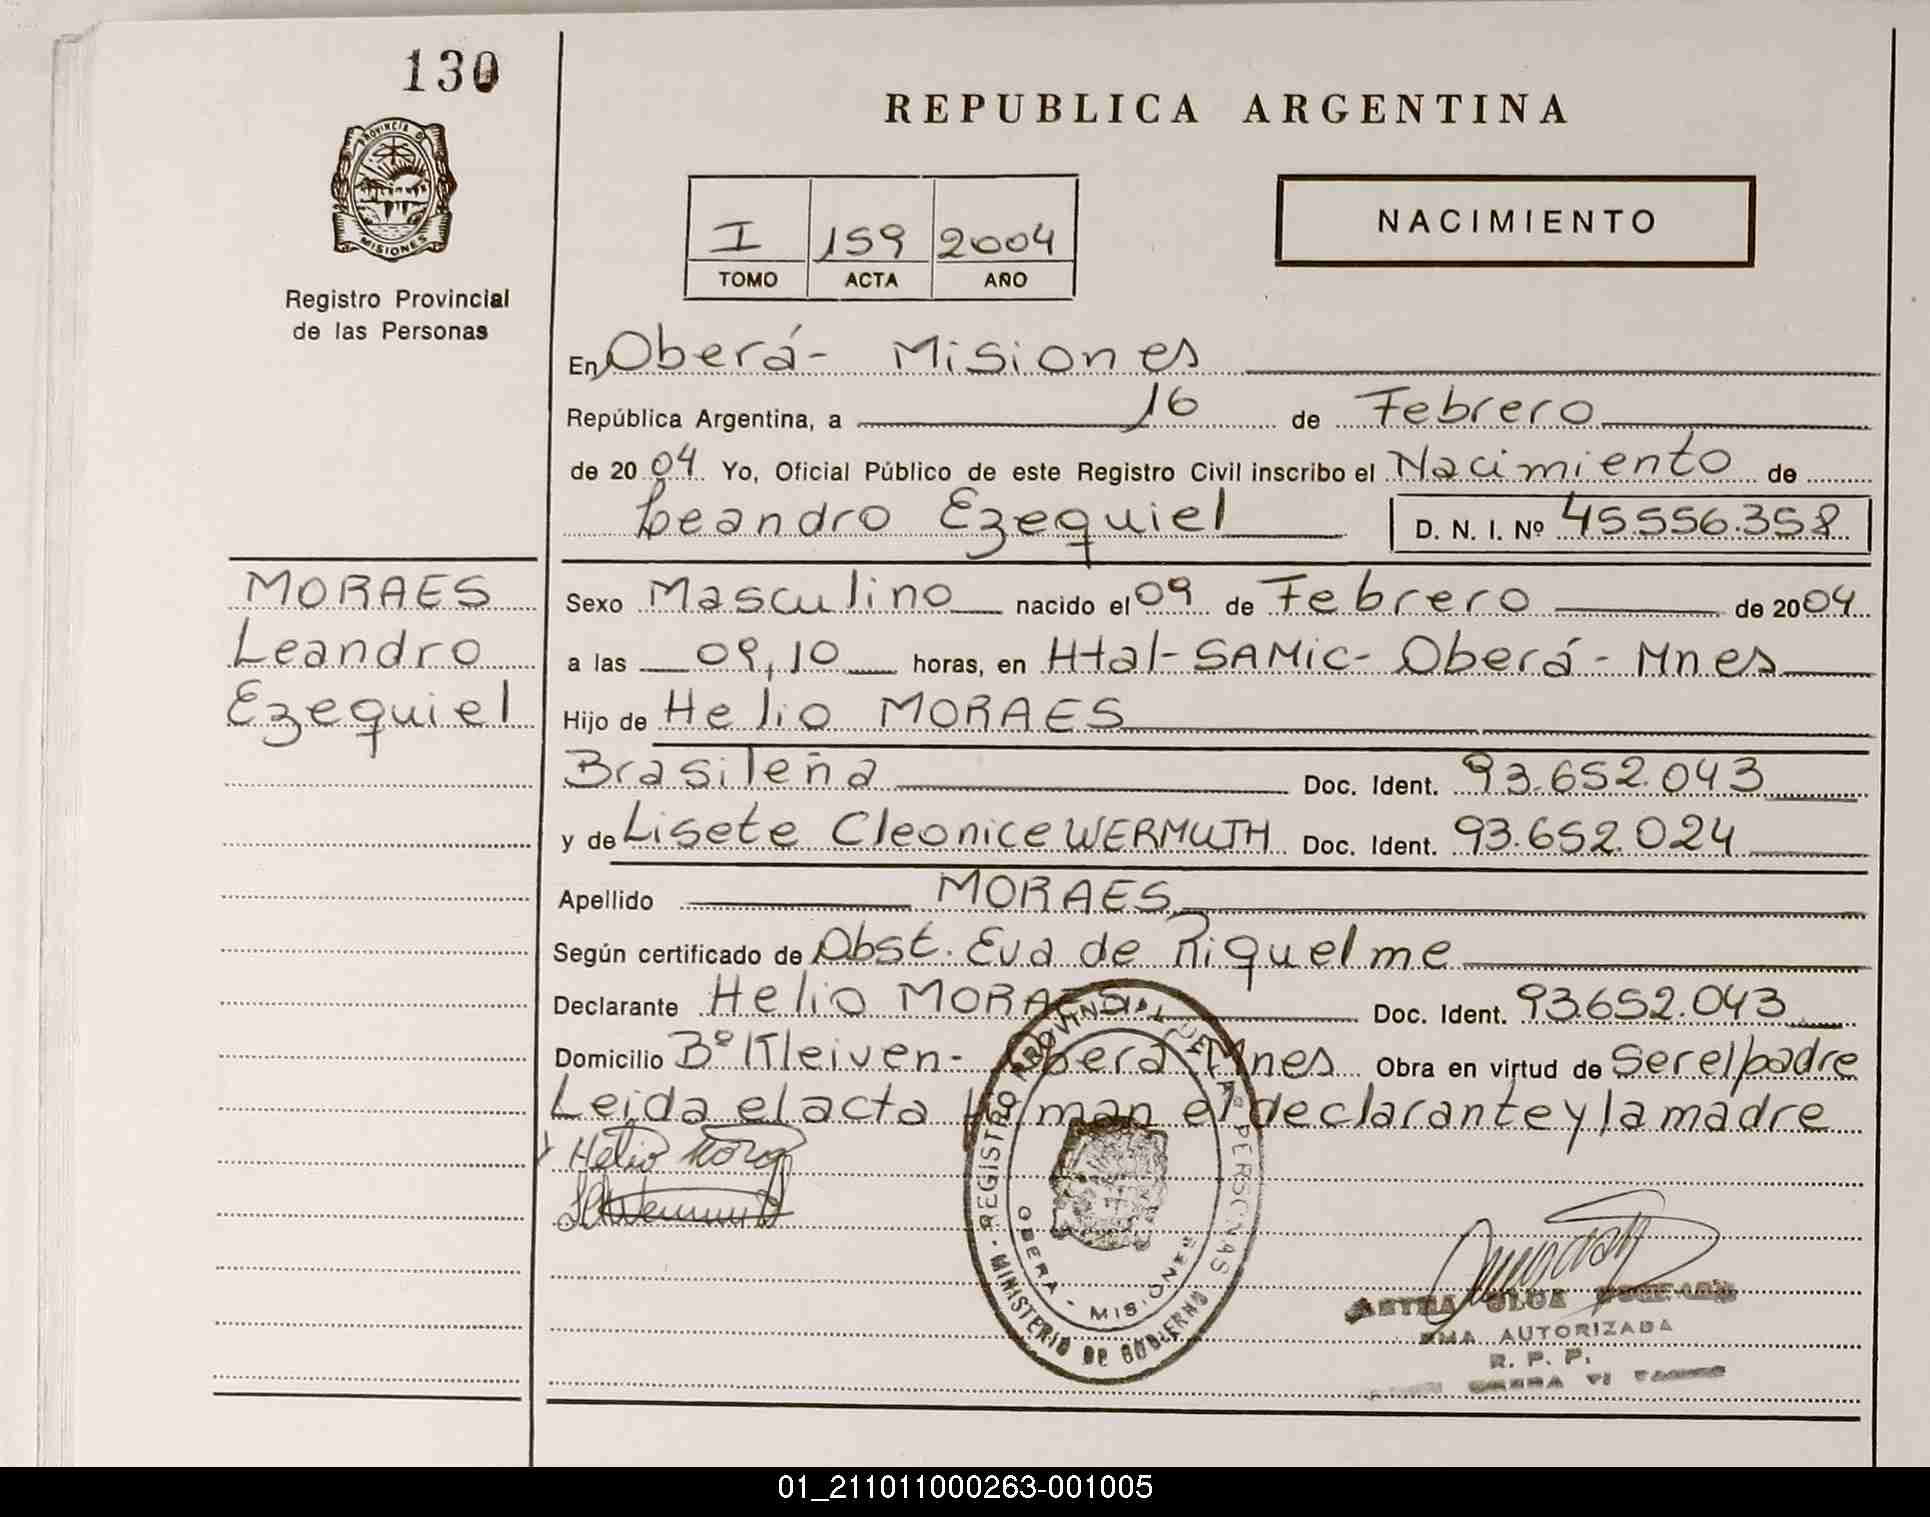 130
PROVINCIA DE
MISIONES
Registro Provincial
de las Personas
REPUBLICA ARGENTINA
I 159 2004
TOMO ACTA AÑO
NACIMIENTO
En Oberá- Misiones
República Argentina, a 16 de Febrero
de 2004 Yo, Oficial Público de este Registro Civil inscribo el Nacimiento de
Leandro Ezequiel D. N. I. Nº 45.556.358
MORAES
Leandro
Ezequiel
Sexo Masculino nacido el 09 de Febrero de 2004
a las 09,10 horas, en Htal- SAMic- Oberá- Mnes
Hijo de Helio MORAES
Brasileña Doc. Ident. 93.652.043
y de Lisete Cleonice WERMUTH Doc. Ident. 93.652.024
Apellido MORAES
Según certificado de Obst. Eva de Riquelme
Declarante Helio MORAES Doc. Ident. 93.652.043
Domicilio Bº Kleiven- Oberá Mnes Obra en virtud de Ser el padre
Leida el acta firman el declarante y la madre
Helio
REGISTRO PROVINCIAL DE LAS PERSONAS
OBERA - MISIONES
- MINISTERIO DE GOBIERNO
OLGA
FIRMA AUTORIZADA
R. P. P.
OBERA
01_211011000263-001005